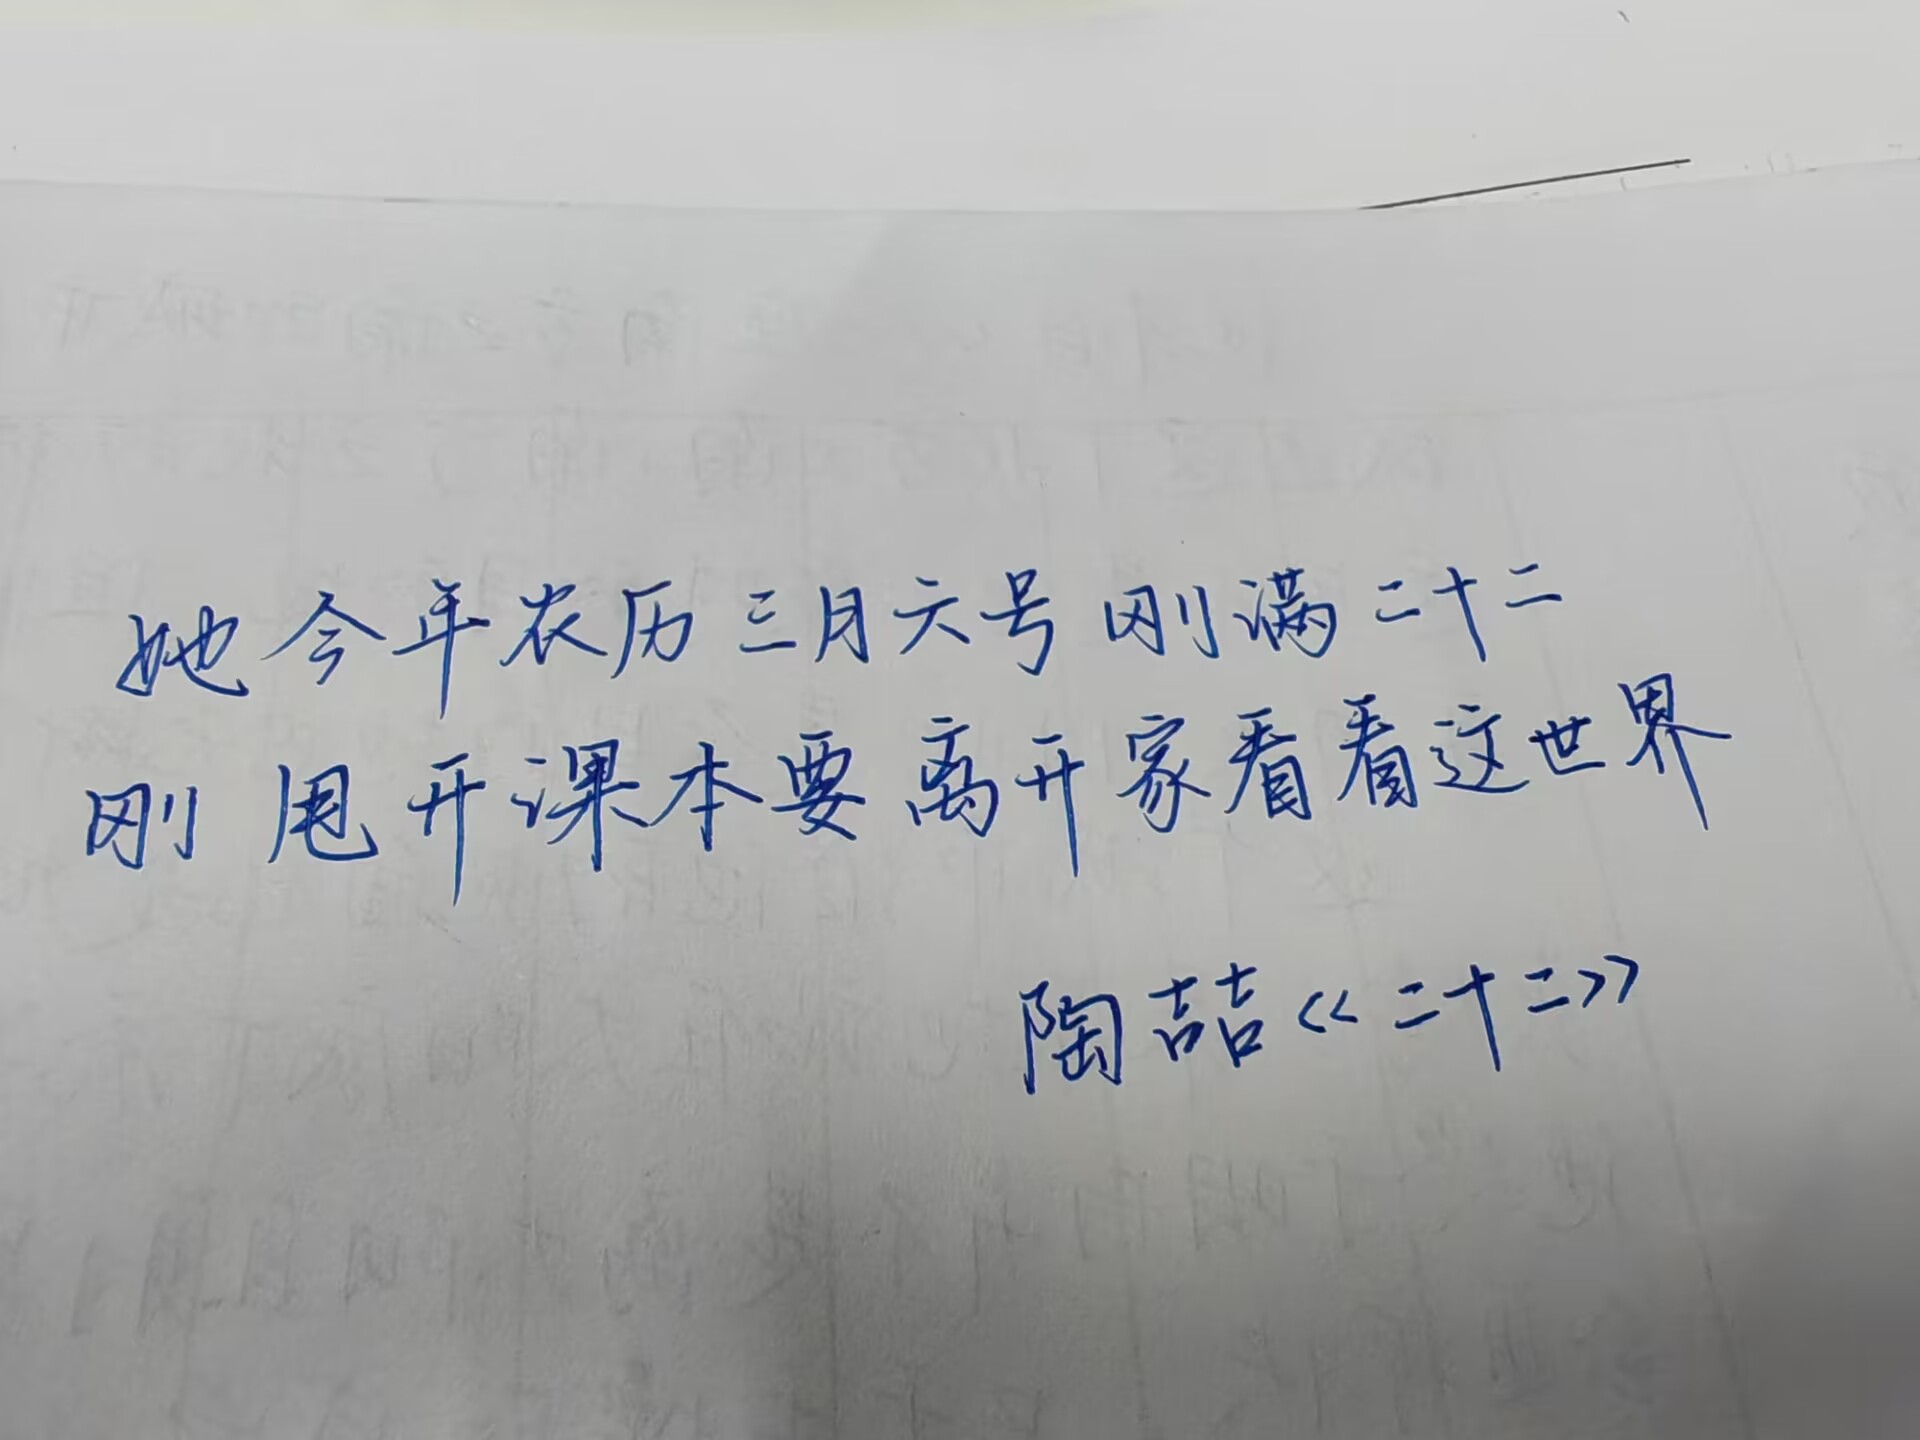 她今年农历三月六号刚满二十二
刚甩开课本要离开家看看这世界
陶喆《二十二》